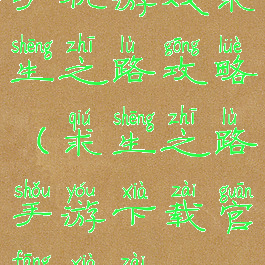 手机游戏求
shēng zhī lù gōng lüè
生之路攻略
qiú shēng zhī lù
（求生之路
shǒu yóu xià zài guān
手游下载官
fāng xià zài